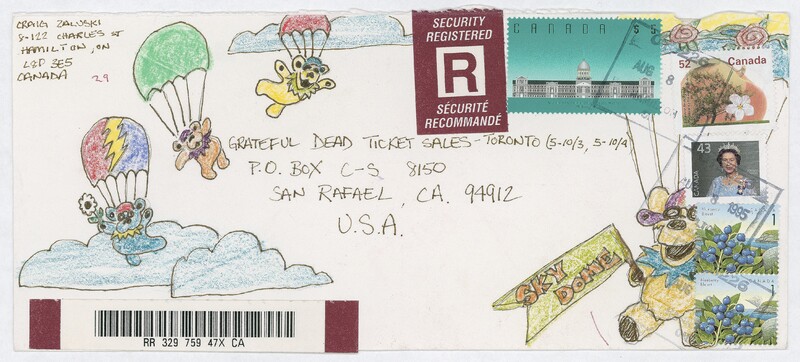 CRAIG ZALUSKI
8-122 CHARLES ST
HAMILTON, ON
L8P 3E5
CANADA
29
SECURITY
REGISTERED
R
SÉCURITÉ
RECOMMANDÉ
CANADA $5
52 Canada
43
CANADA
AUG
8
1995
GRATEFUL DEAD TICKET SALES - TORONTO (5-10/3, 5-10/4
P.O. BOX C-S 8150
SAN RAFAEL, CA. 94912
U.S.A.
SKY
DOME!
1
CANADA
1
CANADA
RR 329 759 47X CA